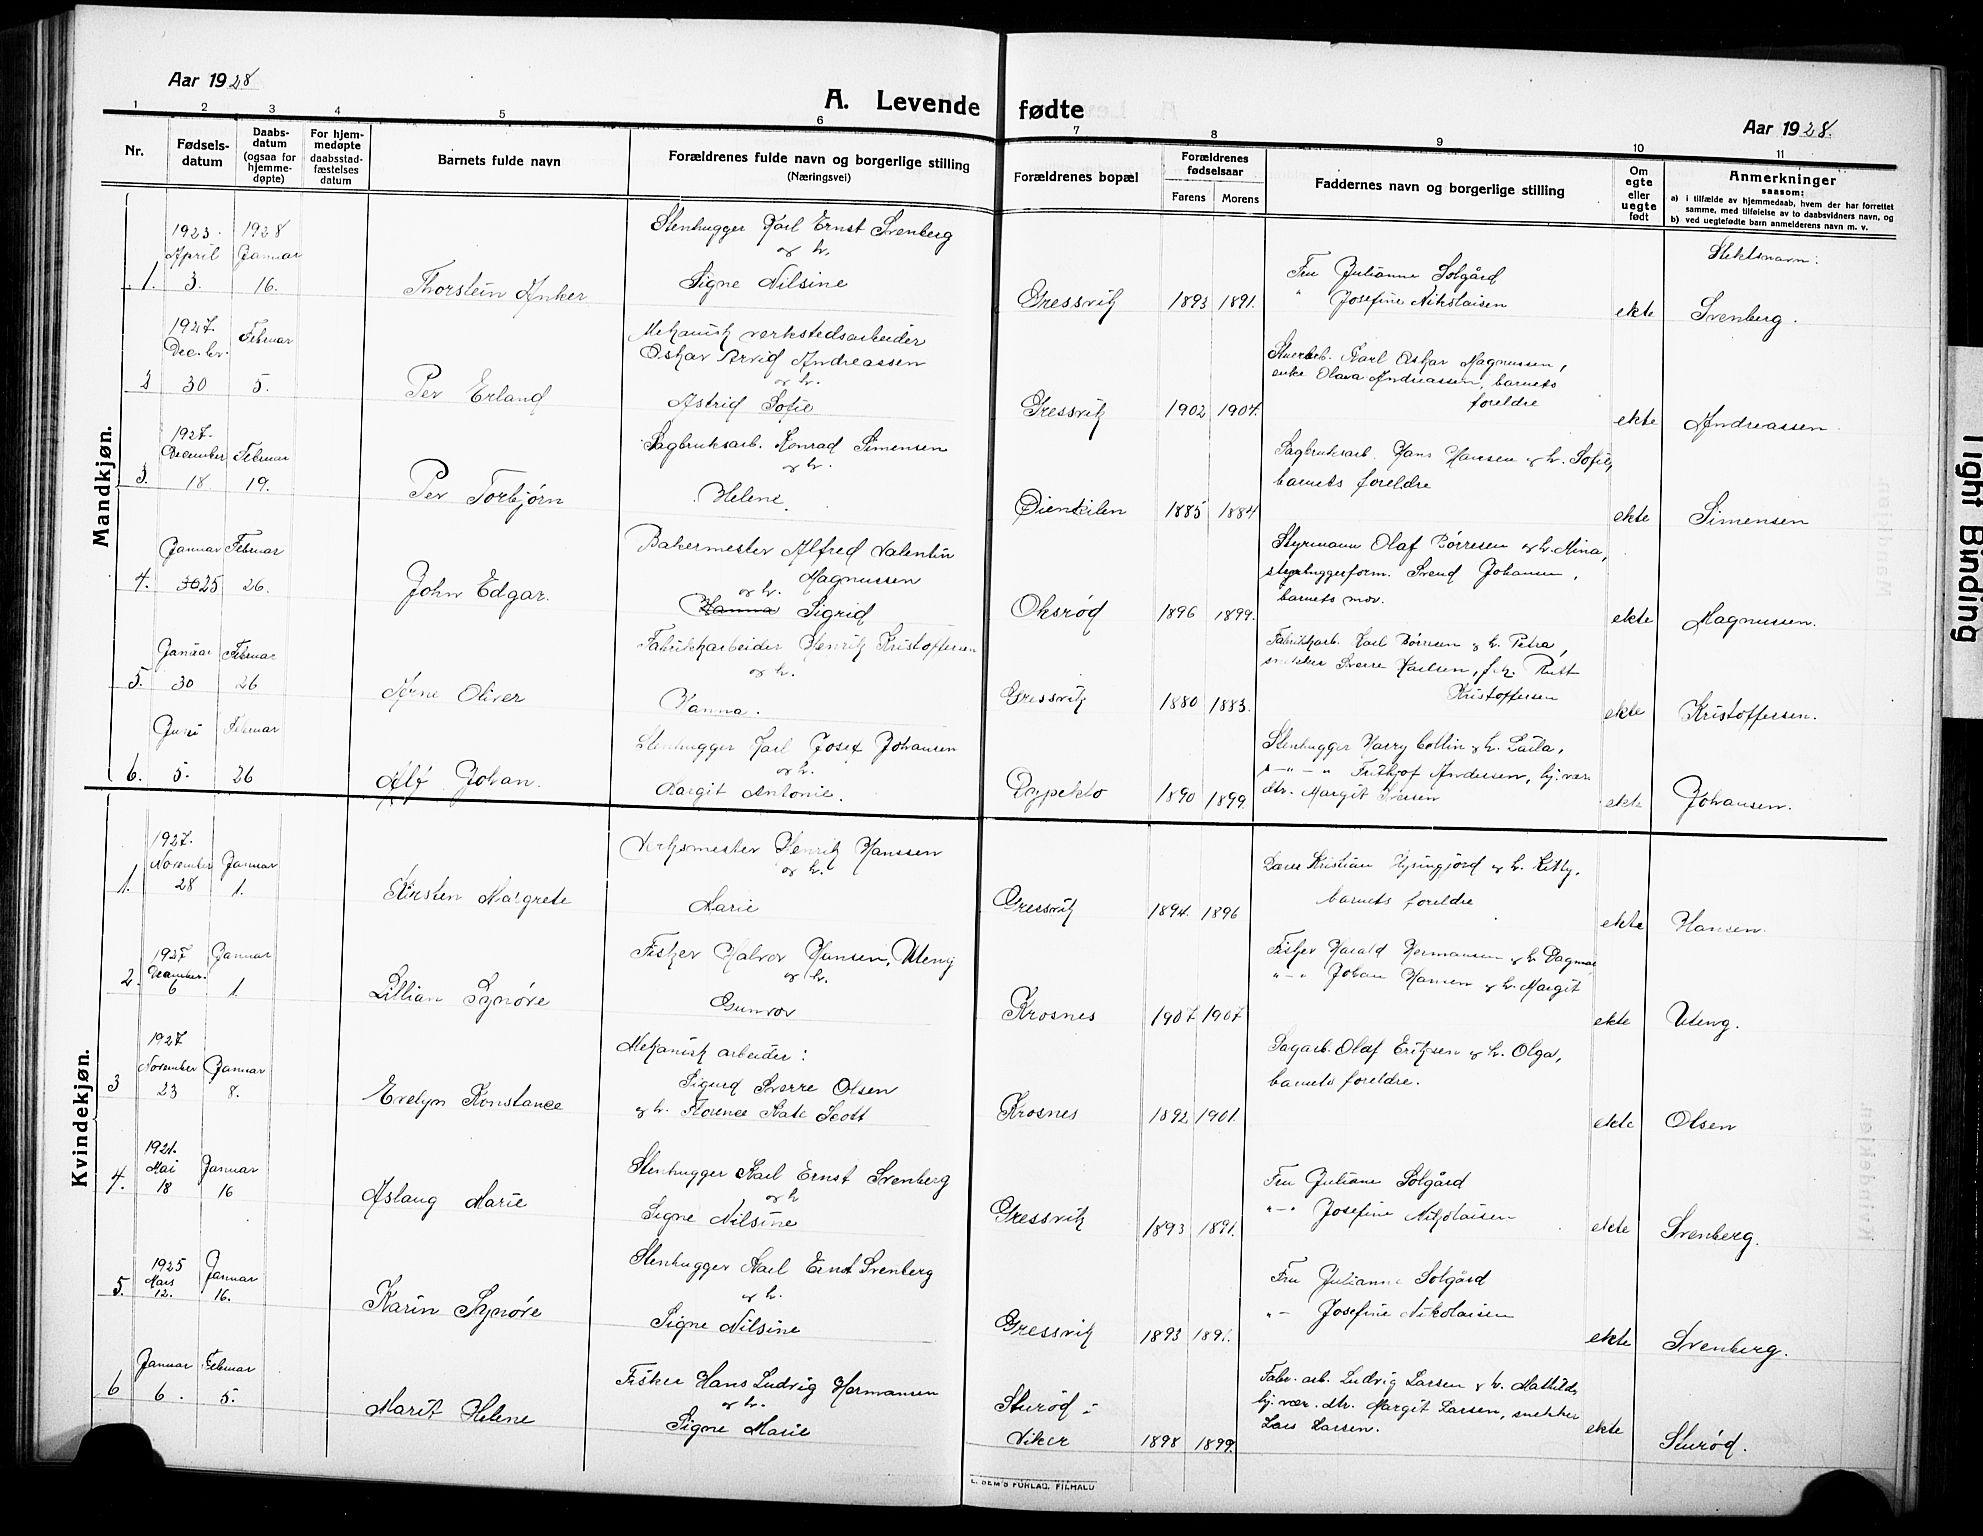 Aar 1928
A. Levende fødte
Aar 1928.
1 2 3 4 5 6 7 8 9 10 11
Nr.
Fødsels-datum
Daabs-datum (ogsaa for hjemme-døpte)
For hjem-medøpte daabsstad-fæstelses datum
Barnets fulde navn
Forældrenes fulde navn og borgerlige stilling (Næringsvei)
Forældrenes bopæl
Forældrenes fødselsaar
Farens Morens
Faddernes navn og borgerlige stilling
Om egte eller uegte født
Anmerkninger
saasom:
a) i tilfælde av hjemmedaab, hvem der har forrettet samme, med tilføielse av to daabsvidners navn, og
b) ved uegtefødte barn anmelderens navn m. v.
Mandkjøn.
1. 1923. April 3. 1928 Januar 16.
Thorstein Anker
Stenhugger Karl Ernst Svenberg
og h.
Signe Nilsine
Gressvik 1893 1891.
Fru Julianne Solgård
" Josefine Nikolaisen
ekte
Slektsnavn:
Svenberg.
2 1927. Dec.br. 30 Februar 5.
Per Erland
Mekanisk verkstedsarbeider
Oskar Arvid Andreassen
og h.
Astrid Sofie
Gressvik 1902 1904.
Karl Oskar Magnussen,
enke Olava Andreassen, barnets
foreldre
ekte
Andreassen.
3. 1927. December 18 Februar 19.
Per Torbjørn
Sagbruksarb. Konrad Simensen
og h.
Helene.
Øienkilen 1885 1884
Sagbruksarb. Hans Hansen og h. Sofie,
barnets foreldre
ekte
Simensen
4. Januar 30 25 Februar 26.
John Edgar.
Bakermester Alfred Valentin
Magnussen
og h.
Hanna Sigrid
Oksrød 1896 1899.
Styrmann Olaf Børresen og h. Mina,
stenhuggerform. Svend Johansen,
barnets mor.
ekte
Magnussen.
5. Januar 30 Februar 26
Arne Oliver
Fabrikkarbeider Henrik Kristoffersen
og h.
Hanna.
Gressvik 1880 1883.
Fabrikkarb. Karl Børresen og h. Petra,
snekker Sverre Karlsen, frk. Rutt
Kristoffersen
ekte
Kristoffersen.
6. 5. Februar 26
Alf Johan.
Stenhugger Karl Josef Johansen
og h.
Margit Antonie.
Dypeklo 1890 1899.
Stenhugger Harry Collin og h. Laila,
" - " - " Frithjof Andersen, hj.vær.
dtr. Margit Iversen
ekte
Johansen.
Kvindekjøn.
1. 1927. November 28 Januar 1.
Kirsten Margrete
Verksmester Henrik Hanssen
og h.
Marie
Gressvik 1894. 1896
Kristian og h. Kitty,
barnets foreldre
ekte
Hansen.
2. 1927 December. 6 Januar 1.
Lillian Synøve
Fisker Halvor Hansen, Uteng
og h.
Gunvor
Krosnes 1907 1907
Fisker Harald Hermansen og h. Dagmar
" - " Johan Hansen og h. Margit
ekte
Uteng.
3 1927 November 23 Januar 8.
Evelyn Konstance
Mekanisk arbeider:
Sigurd Sverre Olsen
og h. Florence Kate Scott
Krosnes 1892 1901.
Sagarb. Olaf Eriksen og h. Olga,
barnets foreldre.
ekte
Olsen
4. 1921. Mai 18 Januar 16
Aslaug Marie
Stenhugger Karl Ernst Svenberg
og h
Signe Nilsine
Gressvik 1893 1891.
Fru Juliane Solgård
" - " Josefine Nikolaisen
ekte
Svenberg.
5. 1925 Mars 12. Januar 16.
Karin Synøve
Stenhugger Karl Ernst Svenberg
og h.
Signe Nilsine
Gressvik 1893 1891.
Fru Julianne Solgård
" - Josefine Nikolaisen
ekte
Svenberg.
6 Januar 6. Februar 5.
Marit Helene
Fisker Hans Ludvig Hermansen
og h.
Signe Marie
Sturød -
Viker 1898 1899.
Fabr. arb. Ludvig Larsen og h. Mathilde,
hj.vær. dtr. Margit Larsen, snekker
Lars Larsen.
ekte
Sturød.
E. SEM'S FORLAG, FR.HALD
Tight Binding